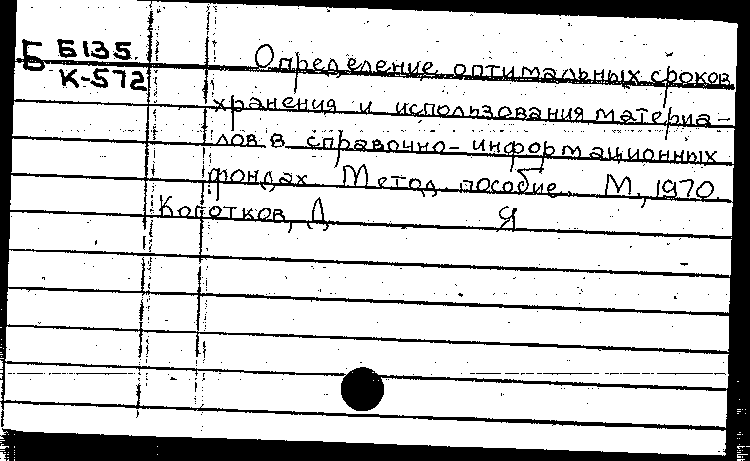 Б Б135
К-572
Определение оптимальных сроков
хранения и использования материа-
лов в справочно-информационных
фондах. Метод. пособие. М., 1970
Коротков, Д. Я